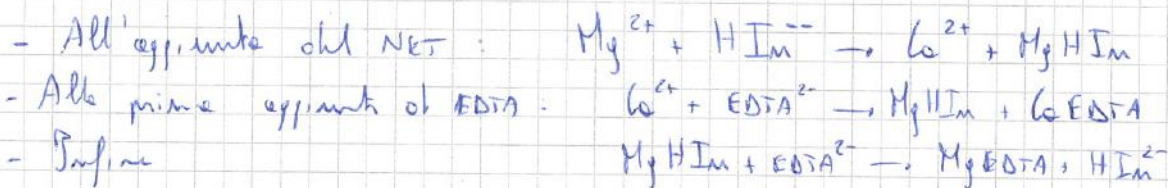 - All'aggiunta del NET : Mg²⁺ + HIn⁻⁻ → Ca²⁺ + MgHIn
- Alla prima aggiunta di EDTA. Ca²⁺ + EDTA²⁻ → MgHIn + CaEDTA
- Infine MgHIn + EDTA²⁻ → MgEDTA + HIn²⁻